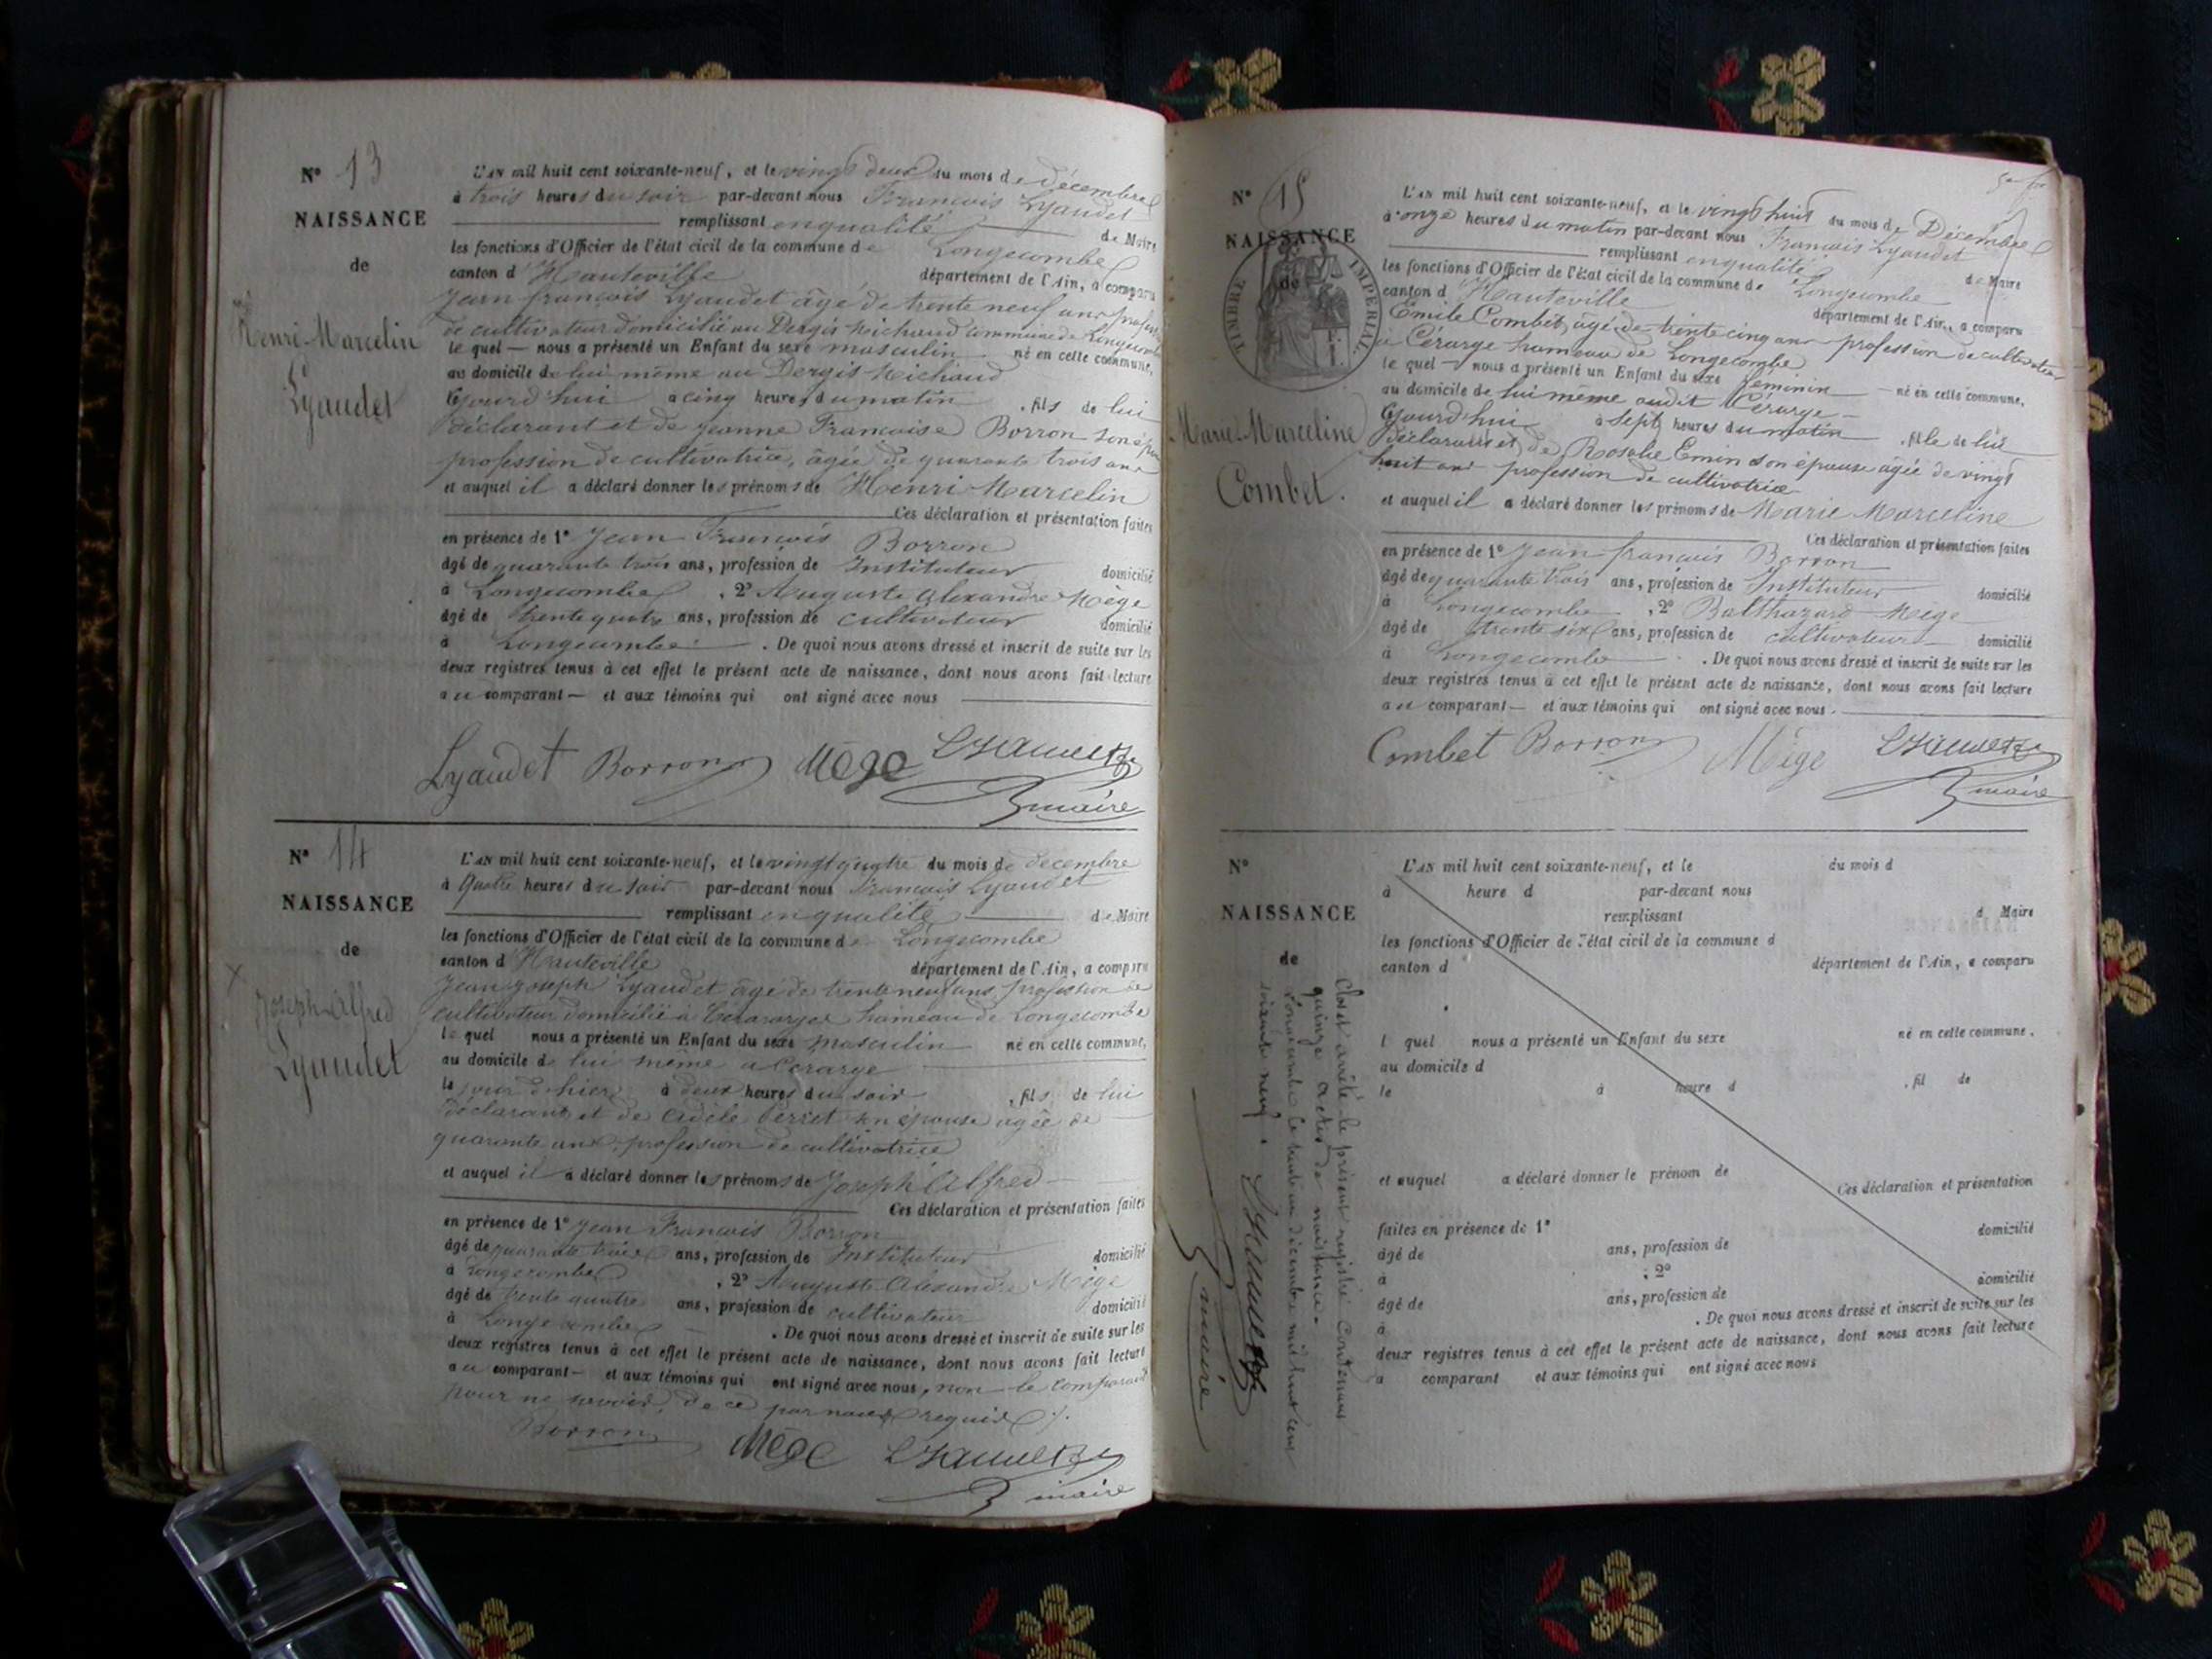 N° 13
NAISSANCE
de
Henri Marcelin
Lyaudet
L'AN mil huit cent soixante-neuf, et le vingt deux du mois de décembre
à trois heures du soir par-devant nous François Lyaudet
remplissant en qualité de Maire
les fonctions d'Officier de l'état civil de la commune de Longecombe
canton d'Hauteville département de l'Ain, a comparu
Jean françois Lyaudet âgé de trente neuf ans profession
de cultivateur domicilié au Dergis Michaud commune de Longecombe
le quel — nous a présenté un Enfant du sexe masculin né en cette commune,
au domicile de lui même au Dergis Michaud
Ejourd'hui à cinq heures du matin , fils de lui
déclarant et de Jeanne Françoise Borron son épouse
profession de cultivatrice, âgée de quarante trois ans
et auquel il a déclaré donner les prénoms de Henri Marcelin
Ces déclaration et présentation faites
en présence de 1° Jean François Borron
âgé de quarante trois ans, profession de Instituteur domicilié
à Longecombe , 2° Auguste Alexandre Mège
âgé de trente quatre ans, profession de cultivateur domicilié
à Longecombe . De quoi nous avons dressé et inscrit de suite sur les
deux registres tenus à cet effet le présent acte de naissance, dont nous avons fait lecture
au comparant — et aux témoins qui ont signé avec nous
Lyaudet Borron Mège Lyaudet
maire
N° 14
NAISSANCE
de
Joseph Alfred
Lyaudet
L'AN mil huit cent soixante-neuf, et le vingt quatre du mois de décembre
à Quatre heures du soir par-devant nous François Lyaudet
remplissant en qualité de Maire
les fonctions d'Officier de l'état civil de la commune de Longecombe
canton d'Hauteville département de l'Ain, a comparu
Jean Joseph Lyaudet âgé de trente neuf ans profession de
cultivateur domicilié à hameau de Longecombe
le quel nous a présenté un Enfant du sexe masculin né en cette commune,
au domicile de lui même a Cérarge
le jour d'hier à deux heures du soir , fils de lui
déclarant et de Adèle Perret son épouse agée de
quarante ans, profession de cultivatrice
et auquel il a déclaré donner les prénoms de Joseph Alfred
Ces déclaration et présentation faites
en présence de 1° Jean François Borron
âgé de quarante trois ans, profession de Instituteur domicilié
à Longecombe , 2° Auguste Alexandre Mège
âgé de trente quatre ans, profession de cultivateur domicilié
à Longecombe . De quoi nous avons dressé et inscrit de suite sur les
deux registres tenus à cet effet le présent acte de naissance, dont nous avons fait lecture
au comparant — et aux témoins qui ont signé avec nous, non le comparant
pour ne savoir, de ce par nous requis
Borron Mège Lyaudet
maire
N° 15
NAISSANCE
de
TIMBRE IMPERIAL
Marie Marceline
Combet.
L'AN mil huit cent soixante-neuf, et le vingt huit du mois de Décembre
à onze heures du matin par-devant nous François Lyaudet
remplissant en qualité de Maire
les fonctions d'Officier de l'état civil de la commune de Longecombe
canton d'Hauteville département de l'Ain, a comparu
Emile Combet, âgé de trente cinq ans profession de cultivateur
à Cérarge hameau de Longecombe
le quel — nous a présenté un Enfant du sexe féminin — né en cette commune,
au domicile de lui même audit Cérarge
Ejourd'hui à sept heures du matin , fille de lui
déclarant et de Rosalie Emin son épouse âgée de vingt
huit ans profession de cultivatrice
et auquel il a déclaré donner les prénoms de Marie Marceline
Ces déclaration et présentation faites
en présence de 1° Jean françois Borron
âgé de quarante trois ans, profession de Instituteur domicilié
à Longecombe , 2° Balthazard Mège
âgé de trente six ans, profession de cultivateur domicilié
à Longecombe . De quoi nous avons dressé et inscrit de suite sur les
deux registres tenus à cet effet le présent acte de naissance, dont nous avons fait lecture
au comparant — et aux témoins qui ont signé avec nous.
Combet Borron Mège Lyaudet
maire
N°
NAISSANCE
de
L'AN mil huit cent soixante-neuf, et le du mois d
à heure d par-devant nous
remplissant d Maire
les fonctions d'Officier de l'état civil de la commune d
canton d département de l'Ain, a comparu
l quel nous a présenté un Enfant du sexe né en cette commune,
au domicile d
le à heure d , fil de
et auquel a déclaré donner le prénom de
Ces déclaration et présentation
faites en présence de 1° domicilié
âgé de ans, profession de
à , 2° domicilié
âgé de ans, profession de
à . De quoi nous avons dressé et inscrit de suite sur les
deux registres tenus à cet effet le présent acte de naissance, dont nous avons fait lecture
a comparant et aux témoins qui ont signé avec nous
Clos et arrêté le présent registre contenant
quinze actes de naissance.
Longecombe le trente un décembre mil huit cent
soixante neuf.
Lyaudet
maire